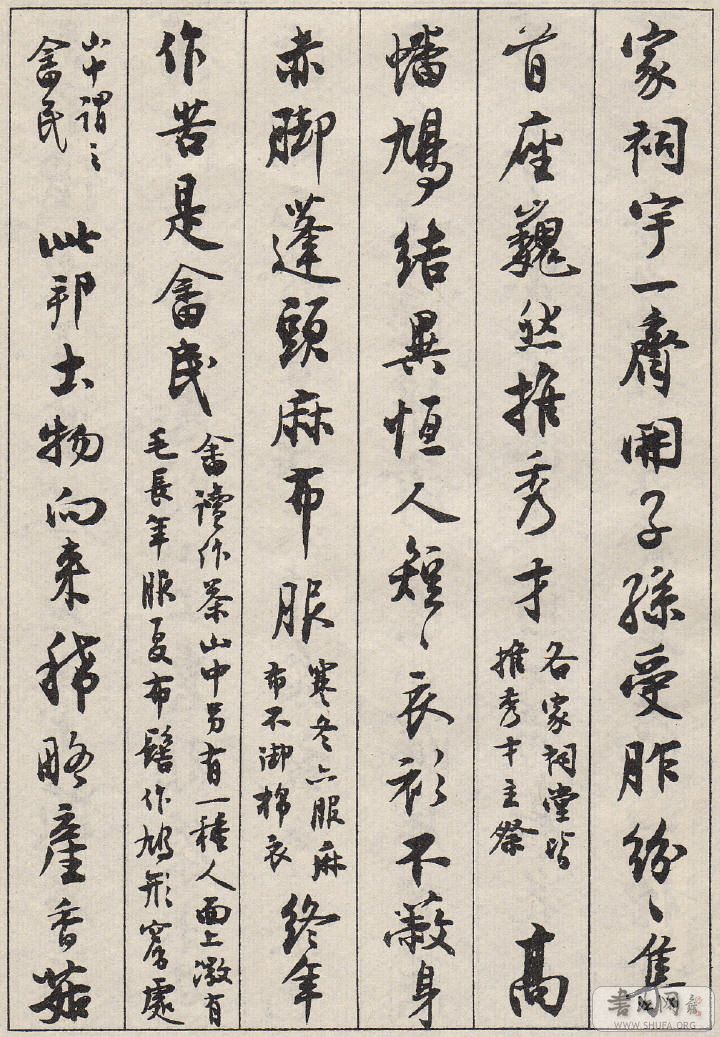 家祠宇一齊開子孫受胙紛〻集
首座巍然推秀才
各家祠堂皆
推秀才主祭
高
幡鳩結異恒人短〻衣衫不蔽身
赤脚蓬頭麻布服
寒冬亦服麻
布不御棉衣
終年
作苦是畬民
畬讀作茶山中另有一種人面上微有
毛長年服夏布髻作鳩形處
山中謂之
畬民
此邦土物向来稀略産香菇
WWW.SHUFA.ORG